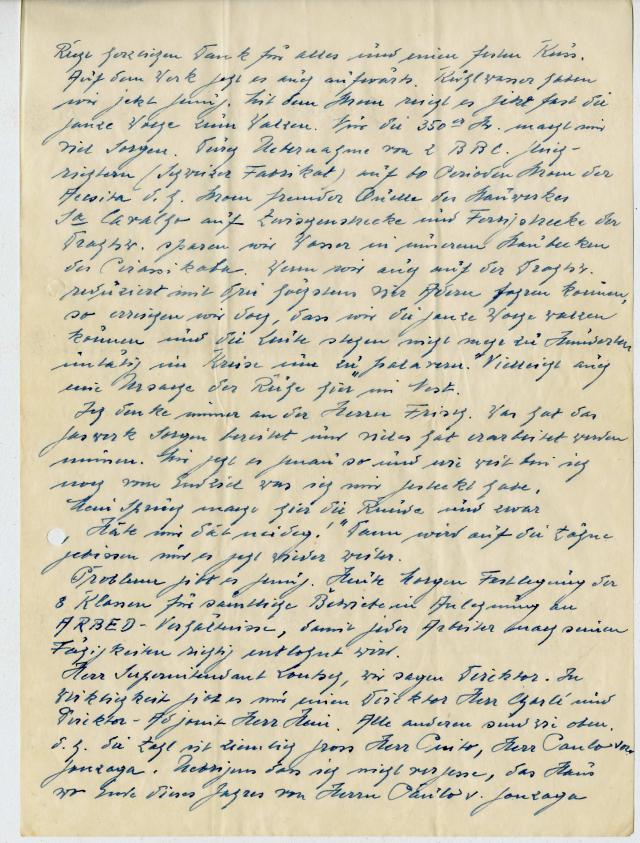 Recht herzlichen Dank für alles und einen festen Kuss.
Auf dem Werk geht es auch aufwärts. Kühlwasser haben
wir jetzt genug. Mit dem Strom reicht es jetzt fast die
ganze Woche zum Walzen. Für die 350er Str. macht mir
viel Sorgen. Durch Uebernahme von 2 BBC.
richtern (Schweizer Fabrikat) auf 60 Perioden Strom der
Acesita d.h. Strom fremder Quelle des Stauwerkes
Sa Carvalho auf Zwischenstrecke und Fertigstrecke der
Drahtstr. sparen wir Wasser in unserem Staubecken
des Pirassikaba. Wenn wir auch auf der Drahtstr.
reduziert mit drei höchstens vier Adern fahren können,
so erreichen wir doch, dass wir die ganze Woche walzen
können und die Leute stehen nicht mehr zu Hunderten
untätig im Kreise um zu "palavern." Vielleicht auch
eine Ursache der Ruhe hier im Nest.
Ich denke immer an den Herrn Frisch. Was hat das
Gaswerk Sorgen bereitet und vieles hat erarbeitet werden
müssen. Mir geht es genau so und wie weit bin ich
noch vom Endziel was ich mir gesteckt habe.
Mein Spruch mache hier die Runde und zwar
"Häte mir dat neideg!" Dann wird auf die Zähne
gebissen und es geht wieder weiter.
Probleme gibt es genug. Heute Morgen Festlegung der
8 Klassen für sämtliche Betriebe in Anlehnung an
ARBED-Verhältnisse, damit jeder Arbeiter nach seinen
Fähigkeiten richtig entlohnt wird.
Herr Superintendant Loutsch, wir sagen Direktor. In
Wirklichkeit gibt es nur einen Direktor Herr Charlé und
Direktor-Adjoint Herr Hein. Alle anderen sind wie oben.
d.h. die Zahl ist ziemlich gross Herr Pinto, Herr Paulo von
Gonzaga. Uebrigens dass ich nicht vergesse, das Haus
wo Ende dieses Jahres von Herrn Paulo v. Gonzaga